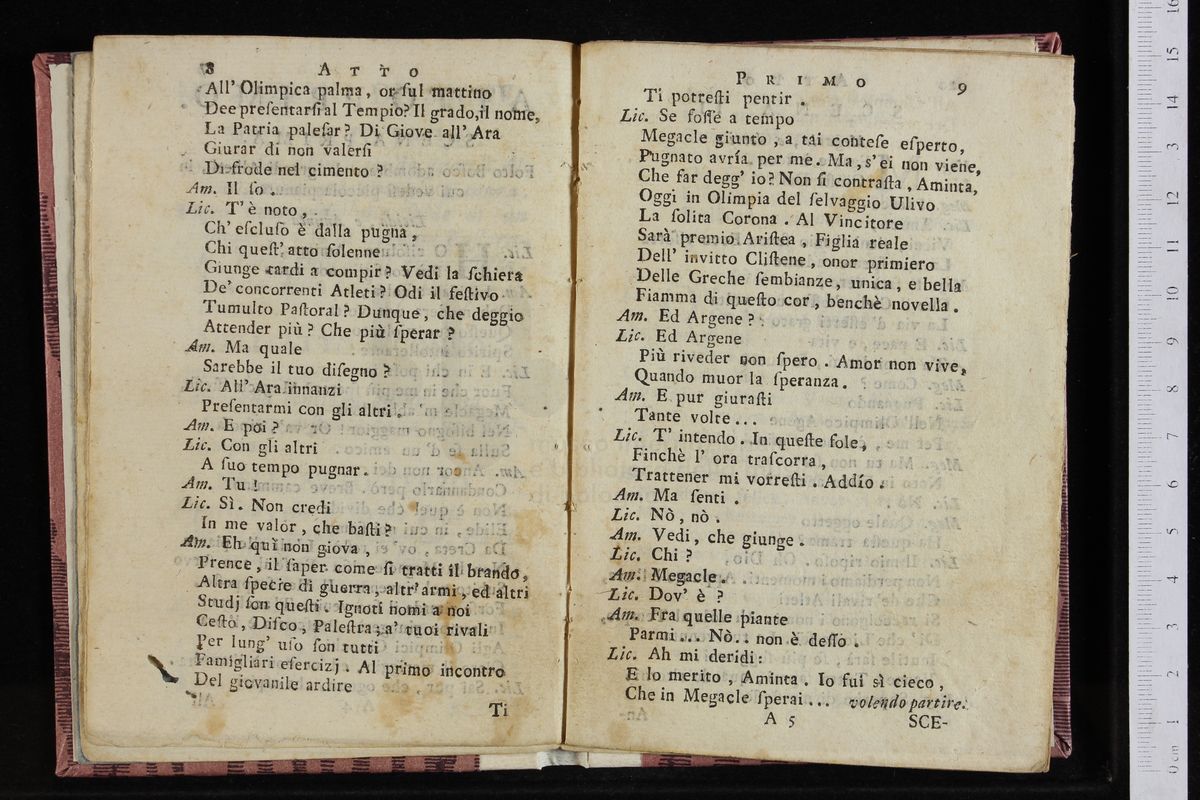 8 ATTO
All' Olimpica palma, or ſul mattino
Dee preſentarſi al Tempio? Il grado, il nome,
La Patria paleſar? Di Giove all' Ara
Giurar di non valerſi
Di frode nel cimento?
Am. Il ſo.
Lic. T' è noto,
Ch' eſcluſo è dalla pugna,
Chi queſt' atto ſolenne
Giunge tardi a compir? Vedi la ſchiera
De' concorrenti Atleti? Odi il feſtivo
Tumulto Paſtoral? Dunque, che deggio
Attender più? Che più ſperar?
Am. Ma quale
Sarebbe il tuo diſegno?
Lic. All' Ara innanzi
Preſentarmi con gli altri.
Am. E poi?
Lic. Con gli altri
A ſuo tempo pugnar.
Am. Tu!
Lic. Sì. Non credi
In me valor, che baſti?
Am. Eh quì non giova,
Prence, il ſaper come ſi tratti il brando,
Altra ſpecie di guerra, altr' armi, ed altri
Studj ſon queſti. Ignoti nomi a noi
Ceſto, Diſco, Paleſtra; a' tuoi rivali
Per lung' uſo ſon tutti
Famigliari eſercizj. Al primo incontro
Del giovanile ardire
Ti
PRIMO 9
Ti potreſti pentir.
Lic. Se foſſe a tempo
Megacle giunto, a tai conteſe eſperto,
Pugnato avrìa per me. Ma, s' ei non viene,
Che far degg' io? Non ſi contraſta, Aminta,
Oggi in Olimpia del ſelvaggio Ulivo
La ſolita Corona. Al Vincitore
Sarà premio Ariſtea, Figlia reale
Dell' invitto Cliſtene, onor primiero
Delle Greche ſembianze, unica, e bella
Fiamma di queſto cor, benchè novella.
Am. Ed Argene?
Lic. Ed Argene
Più riveder non ſpero. Amor non vive,
Quando muor la ſperanza.
Am. E pur giuraſti
Tante volte...
Lic. T' intendo. In queſte fole,
Finchè l' ora traſcorra,
Trattener mi vorreſti. Addío.
Am. Ma ſenti.
Lic. Nò, nò.
Am. Vedi, che giunge.
Lic. Chi?
Am. Megacle.
Lic. Dov' è?
Am. Fra quelle piante
Parmi... Nò.. non è deſſo.
Lic. Ah mi deridi:
E lo merito, Aminta. Io fui sì cieco,
Che in Megacle ſperai... volendo partire.
A 5 SCE-
0 cm 1 2 3 4 5 6 7 8 9 10 11 12 13 14 15 16